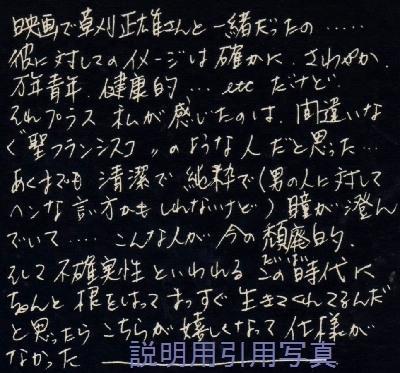 映画で草刈正雄さんと一緒だったの……
彼に対してのイメージは確かに、さわやか、
万年青年、健康的…etc だけど、
それプラス 私が感じたのは、間違いな
く“聖フランシスコ”のような人だと思った…
あくまでも 清潔で 純粋で(男の人に対して
ヘンな言い方かもしれないけど)瞳が澄ん
でいて…‥こんな人が 今の頽廃的、
そして 不確実性といわれる この時代に
ちゃんと 根をはって まっすぐ 生きてくれてるんだ
と思ったら こちらが 嬉しくなって 仕様が
なかった
説明用引用写真